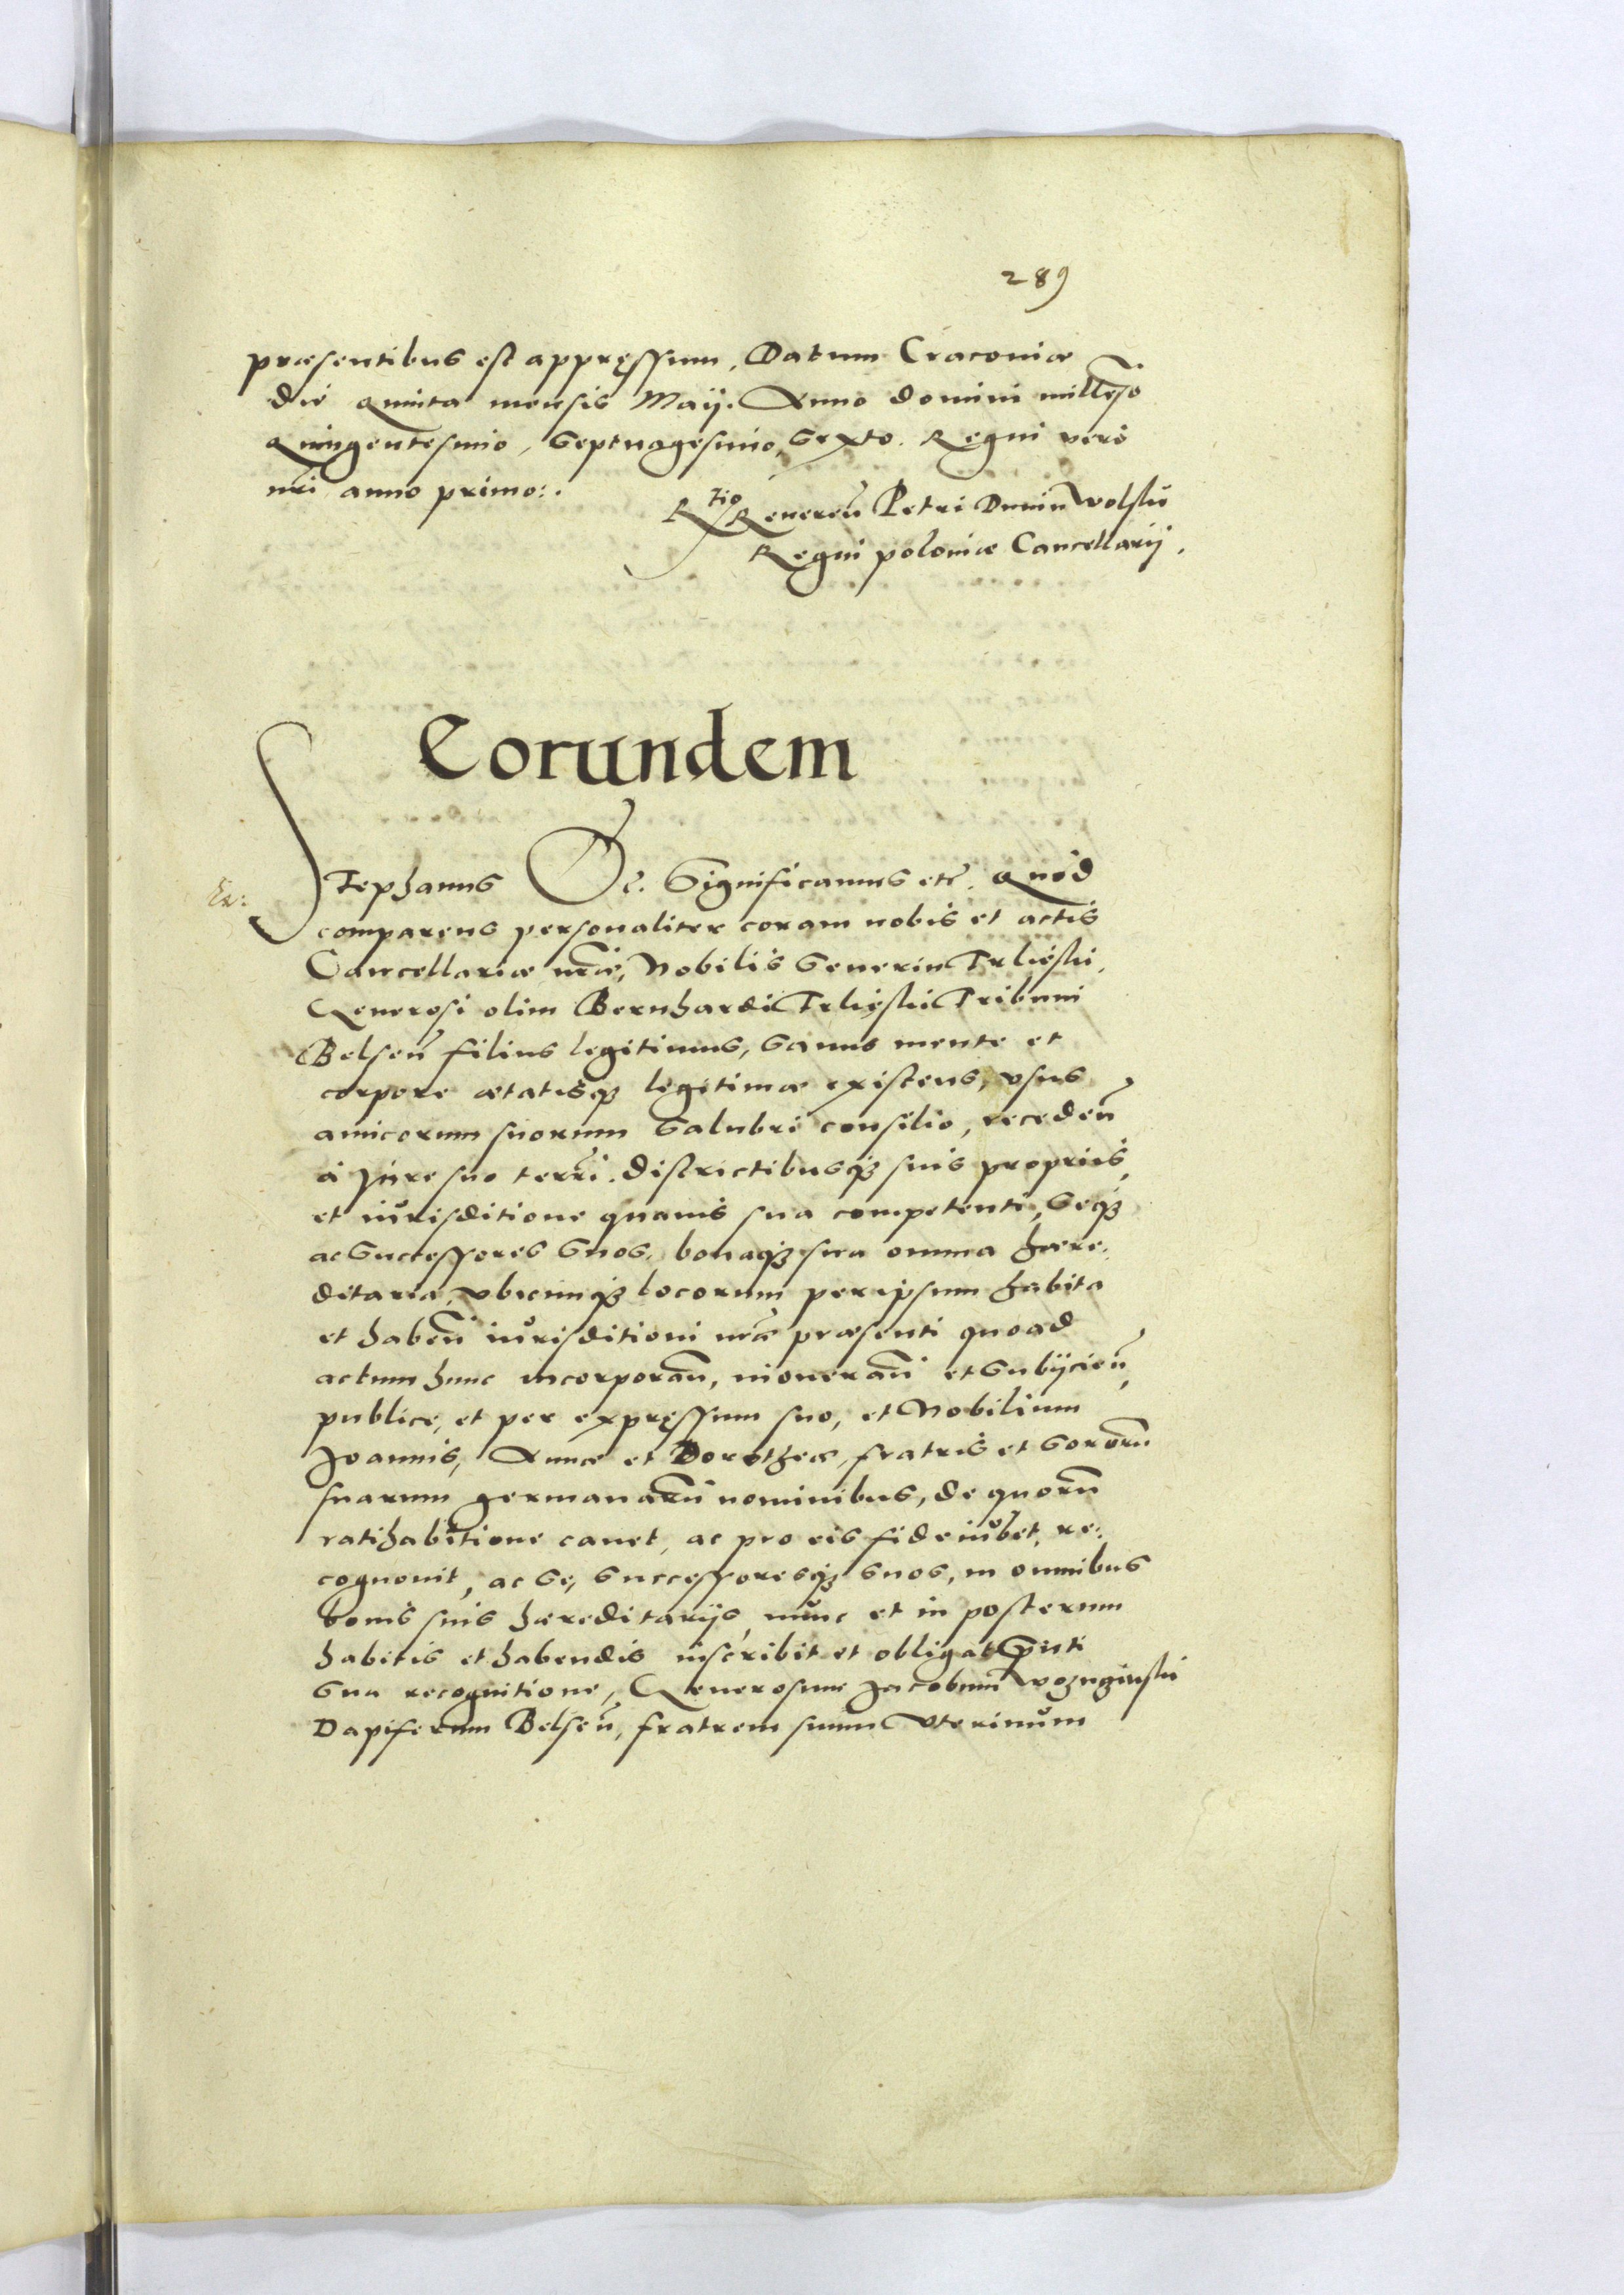 289
præsentibus est appressum, Datum Cracoviæ
die Quinta mensis Maij. Anno Domini mill̃eso
Quingentesimo, Septuagesimo, Sexto. Regni vero
nr̃i anno primo:.
R^tio Reveren̄ Petri Dunin Wolski
Regni poloniæ Cancellarij.
Eorundem
Stephanus Dei. Significamus etc̃. Quod
comparens personaliter coram nobis et actis
Cancellariæ nr̃æ, Nobilis Severin Trlieski,
Generosi olim Bernhardi Trlieski Tribuni
Belsen̄ filius legitimus, sanus mente et
corpore ætatisq₃ legitimæ existens, usus
amicorum suorum salubri consilio, receden̄
à Jure suo terr̃i. districtibusq₃ suis proprijs,
et iurisditione quavis sua competenti, seq₃
ac Successores Suos, bonaq₃ sua omnia hære:
ditaria, ubicunq₃ locorum per ipsum habita
et haben̄ iurisditioni nr̃æ præsenti quoad
actum hunc incorporan̄, inoneran̄ et Subijcien̄,
publice, et per expressum suo, et Nobilium
Joannis, Annæ et Dorotheæ, fratris et Sororũ
suarum germanarũ nominibus, de quorũ
ratihabitione cavet, ac pro eis fideiubet, re:
cognovit, ac Se, Successoresq₃ Suos, in omnibus
bonis suis hæreditarijs, nunc et in posterum
habitis et habendis inscribit et obligat p̃nti
Sua recognitione, Generosum Jacobum
Dapiferum Belsen̄, fratrem suum Uterinum